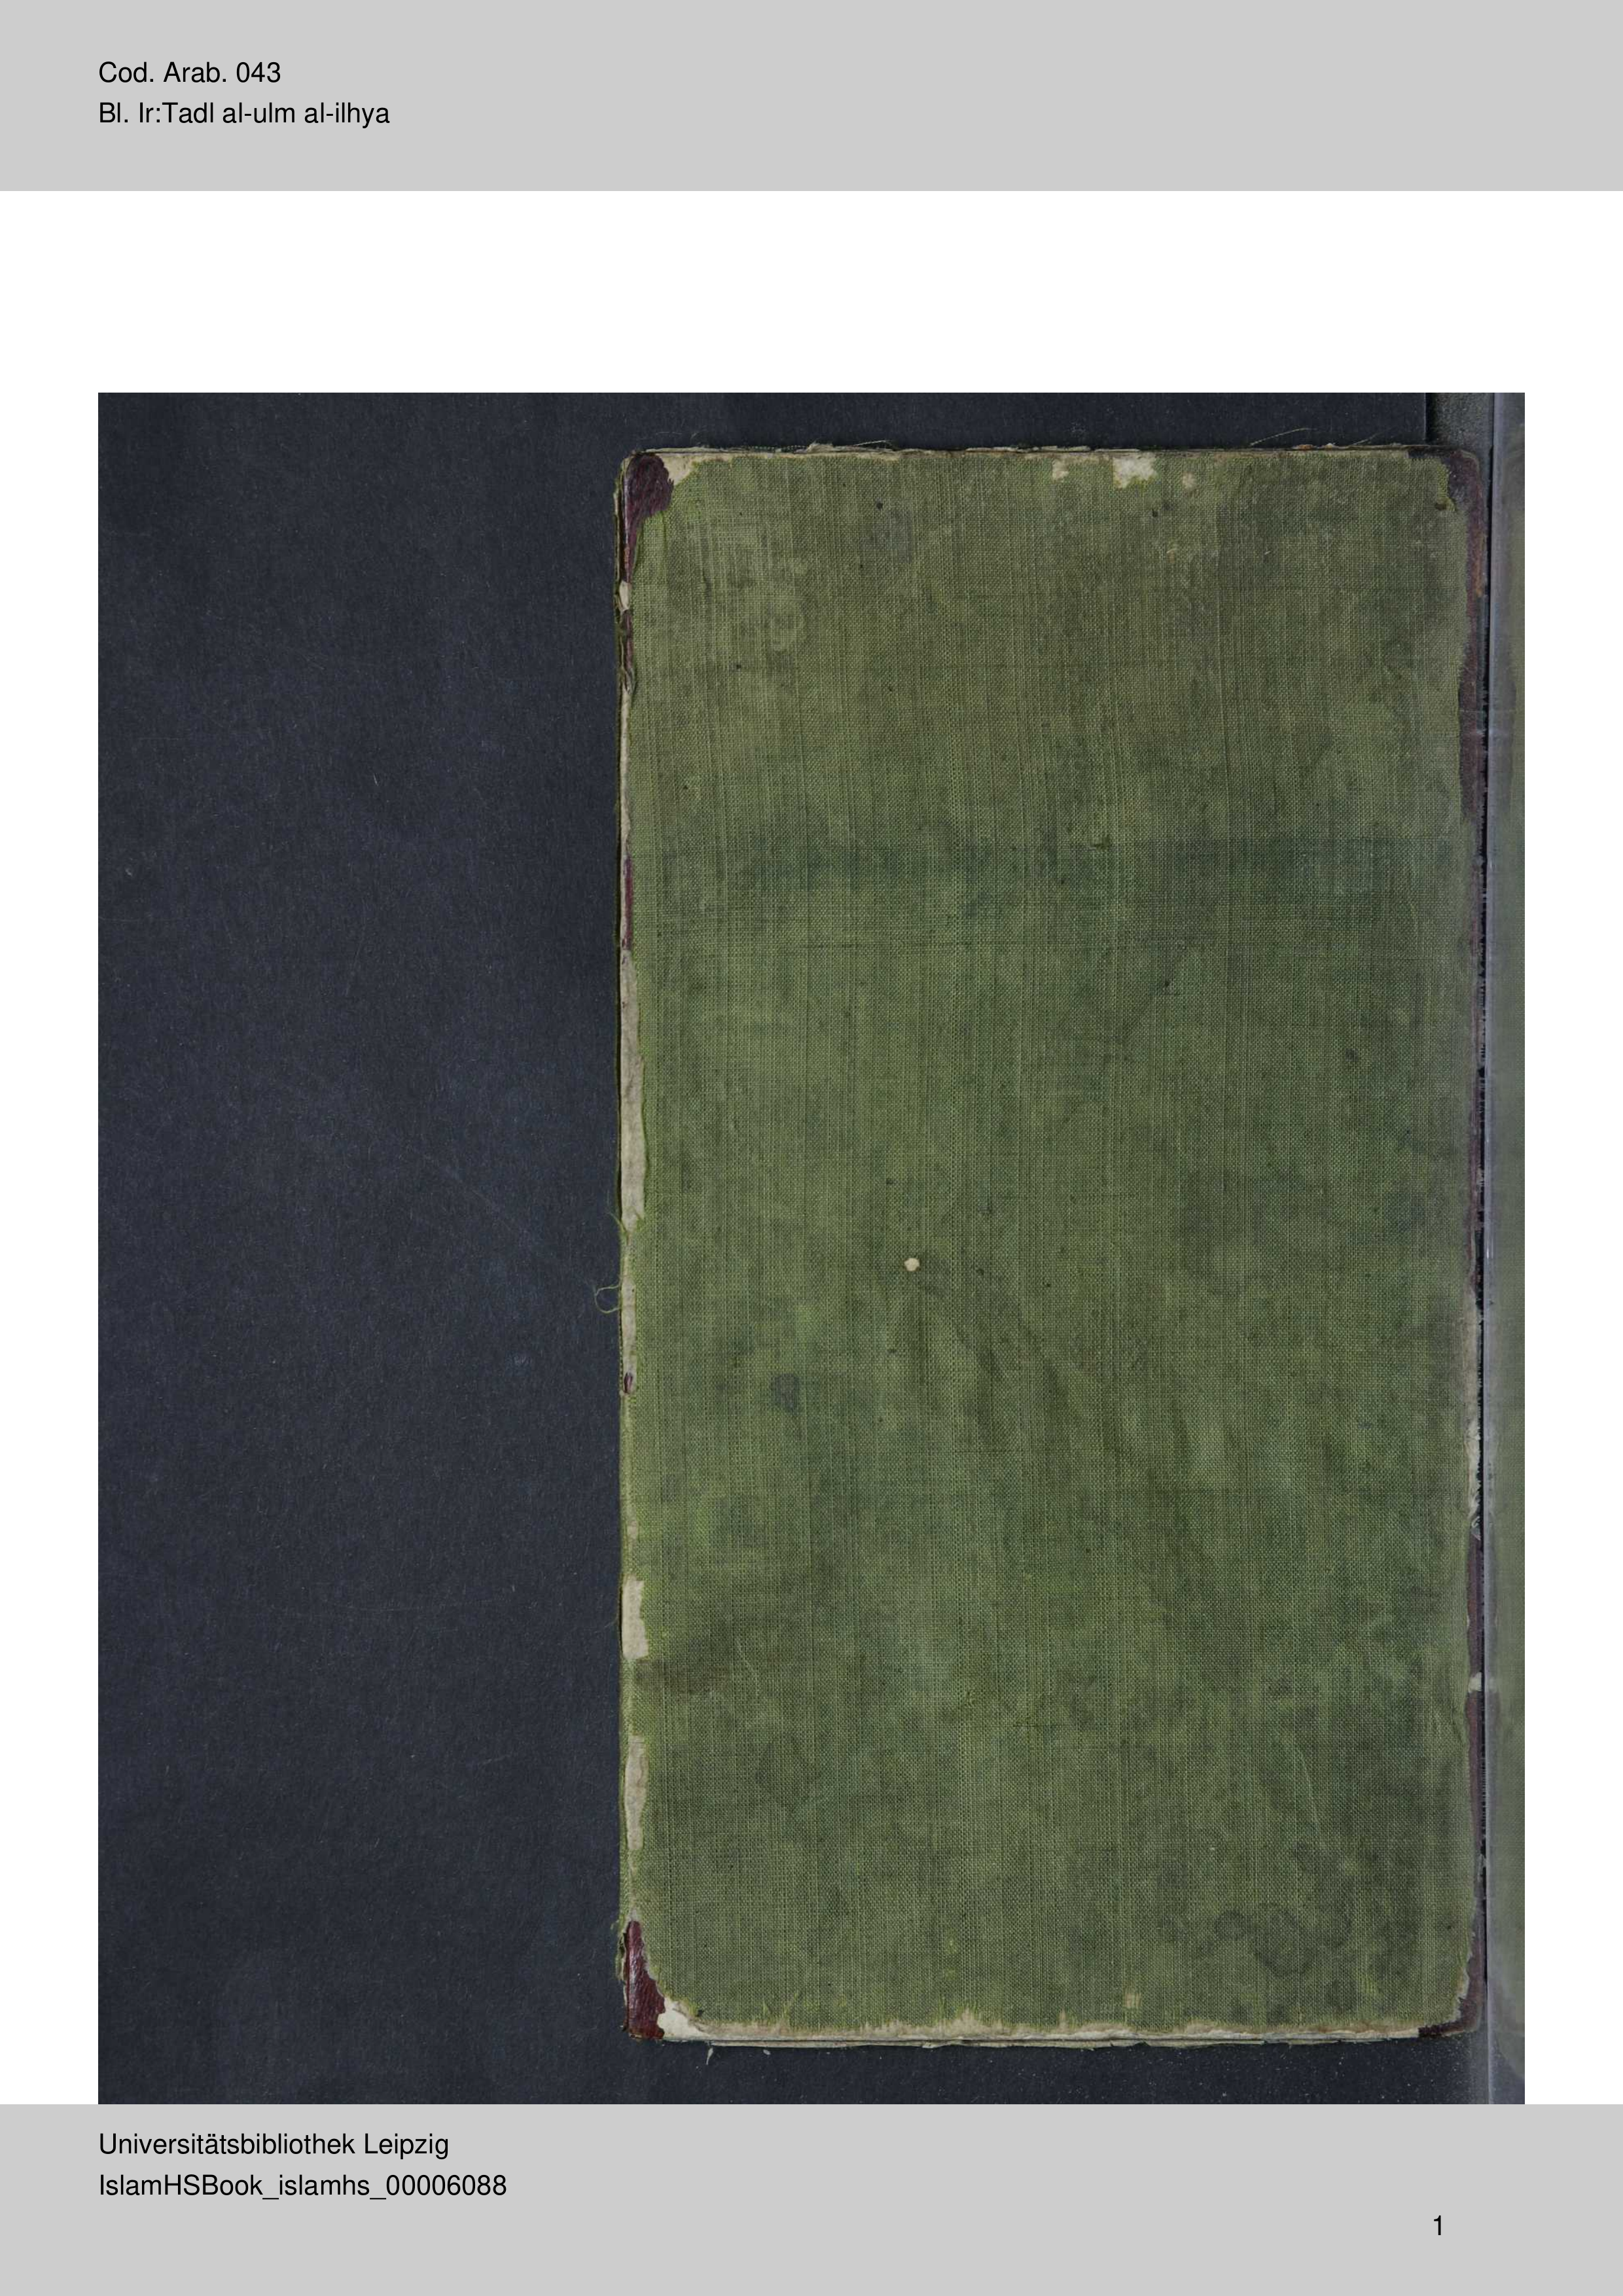 Cod. Arab. 043
Bl. Ir:Tadl al-ulm al-ilhya
Universitätsbibliothek Leipzig
IslamHSBook_islamhs_00006088
1